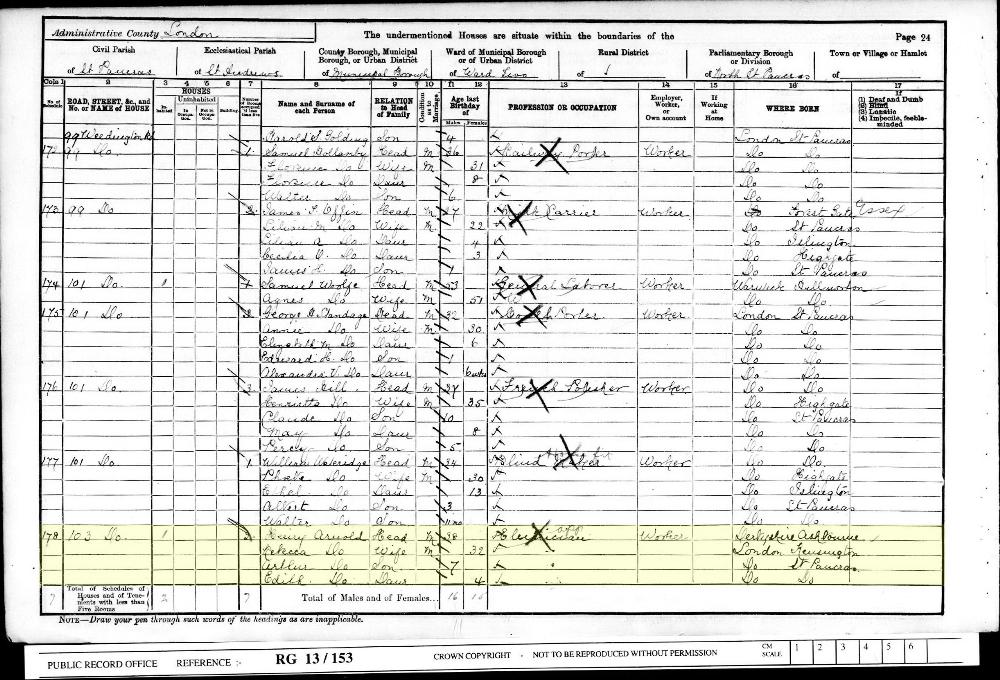 Administrative County London
The undermentioned Houses are situate within the boundaries of the
Page 24
Civil Parish
of St Pancras
Ecclesiastical Parish
of St Andrews
County Borough, Municipal Borough, or Urban District
of Municipal Borough
Ward of Municipal Borough or of Urban District
of Ward Two
Rural District
of
Parliamentary Borough or Division
of North St Pancras
Town or Village or Hamlet
of
Cols 1 2 3 4 5 6 7 8 9 10 11 12 13 14 15 16 17
No. of Schedule
ROAD, STREET, &c., and No. or NAME of HOUSE
HOUSES
Inhabited
Uninhabited
In Occupation
Not in Occupation
Building
Name and Surname of each Person
RELATION to Head of Family
Condition as to Marriage
Age last Birthday of
Males Females
PROFESSION OR OCCUPATION
Employer, Worker, or Own account
If Working at Home
WHERE BORN
(1) Deaf and Dumb
(2) Blind
(3) Lunatic
(4) Imbecile, feeble-minded
99 Weedington Rd Harold S Golding Son 4 London St Pancras
172 99 Do 1 Samuel Head M 36 Railway Porter Worker Do Do
Florence Do Wife M 31 Do Do
Florence Do Daur 8 Do Do
Walter Do Son 6 Do Do
173 99 Do James F Effin Head M 27 Carrier Worker Forest Gate Essex
Lilian M Do Wife M 22 Do St Pancras
Lilian A Do Daur 4 Do Islington
Cecilia Do Daur 3 Do Highgate
James Do Son 1 Do St Pancras
174 101 Do 1 Samuel Woolfe Head M 53 General Laborer Worker Warwick
Agnes Do Wife M 51 Do Do
175 101 Do George Head M 32 Porter Worker London St Pancras
Annie Do Wife M 30 Do Do
Elizabeth M Do Daur 6 Do Do
Edward Do Son 1 Do Do
Alexandra V Do Daur Do Do
176 101 Do 3 James Hill Head M 37 French Polisher Worker Do Do
Henrietta Do Wife M 35 Do Highgate
Claude Do Son 10 Do St Pancras
May Do Daur 8 Do Do
Percy Do Son 5 Do Do
177 101 Do 1 William Head M 34 Blind Maker Worker Do Do
Phoebe Do Wife M 30 Do Highgate
Ethel Do Daur 13 Do Islington
Albert Do Son 3 Do St Pancras
Walter Do Son 11 mo Do Do
178 103 Do 1 Henry Arnold Head M 38 Electrician Worker Derbyshire Ashbourne
Rebecca Do Wife M 32 London Kensington
Arthur Do Son 7 Do St Pancras
Edith Do Daur 4 Do Do
7 Total of Schedules of Houses and of Tenements with less than Five Rooms 2 7 Total of Males and of Females... 16 15
NOTE—Draw your pen through such words of the headings as are inapplicable.
PUBLIC RECORD OFFICE REFERENCE :- RG 13/153 CROWN COPYRIGHT - NOT TO BE REPRODUCED WITHOUT PERMISSION CM SCALE 1 2 3 4 5 6